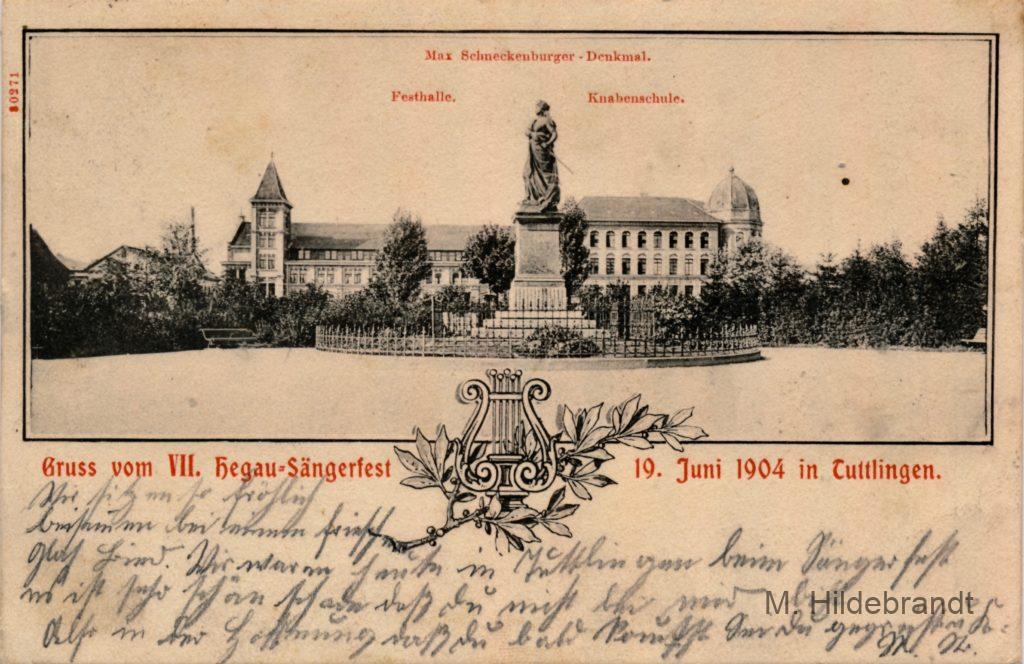 Max Schneckenburger - Denkmal.
Festhalle. Knabenschule.
80271
Gruss vom VII. Hegau-Sängerfest 19. Juni 1904 in Tuttlingen.
Wir sitzen so fröhlich
beisamen bei einem frischen
Glas Bier. Wir waren heute in Tuttlingen beim Sängerfest
es ist sehr schön schade daß du nicht bei
M. Hildebrandt
Also in der Hoffnung daß du bald kommst Sei du gegrüßt